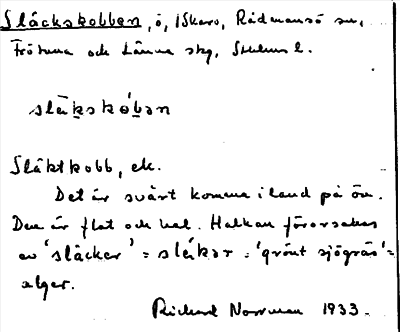 Släckskobben, ö, i Skaro, Rådmansö sn,
Frötuna och Länna skg, Sthlms l.
slɛ̀kskóbən
Släktkobb, ek.
Det är svårt komma i land på ön.
Den är flat och hal. Halkan förorsakas
av 'släcker' = slɛ́kər = 'grönt sjögräs' =
alger.
Richard Norrman 1933.